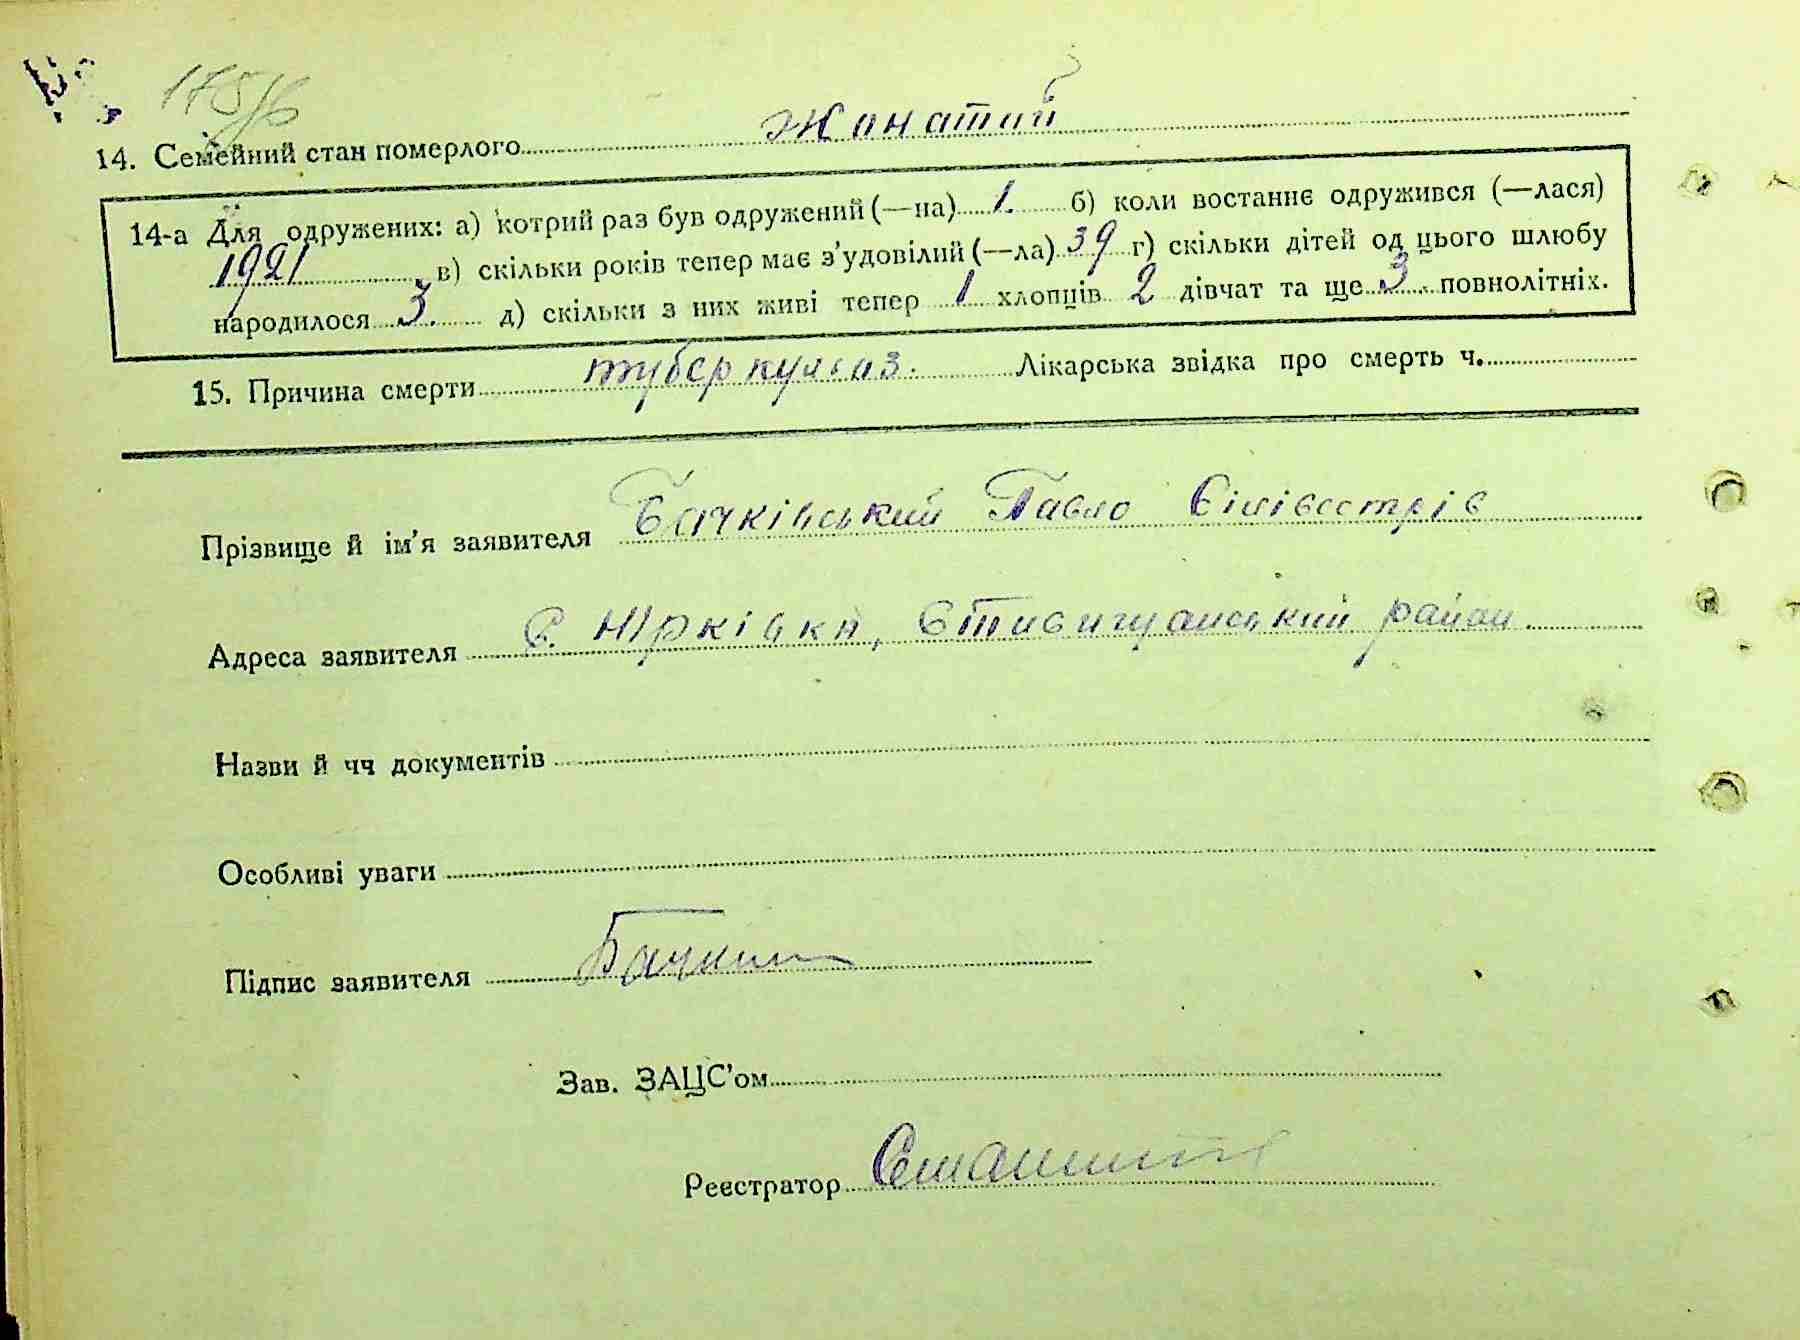 175/6
14. Семейний стан померлого жонатий
14-а Для одружених: а) котрий раз був одружений (—на) 1. б) коли востаннє одружився (—лася)
1921 в) скільки років тепер має з'удовілий (—ла) 39 г) скільки дітей од цього шлюбу
народилося 3. д) скільки з них живі тепер 1 хлопців 2 дівчат та ще 3 повнолітніх.
15. Причина смерти туберкульоз. Лікарська звідка про смерть ч.
Прізвище й ім'я заявителя Бачківський Павло Сілівестрів
Адреса заявителя с. Юрківка, район.
Назви й чч документів
Особливі уваги
Підпис заявителя
Зав. ЗАЦС'ом
Реєстратор